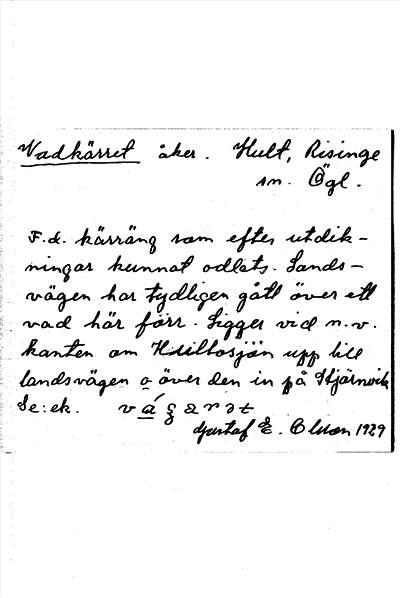 Vadkärret åker. Hult, Risinge
sn. Ögl.
F.d. kärräng som efter utdik-
ningar kunnat odlats. Lands-
vägen har tydligen gått över ett
vad här förr. Ligger vid n.v.
kanten om Hultosjön upp till
landsvägen o över den in på Stjärnvik
Se: ek.
Gustaf E. Olson 1929